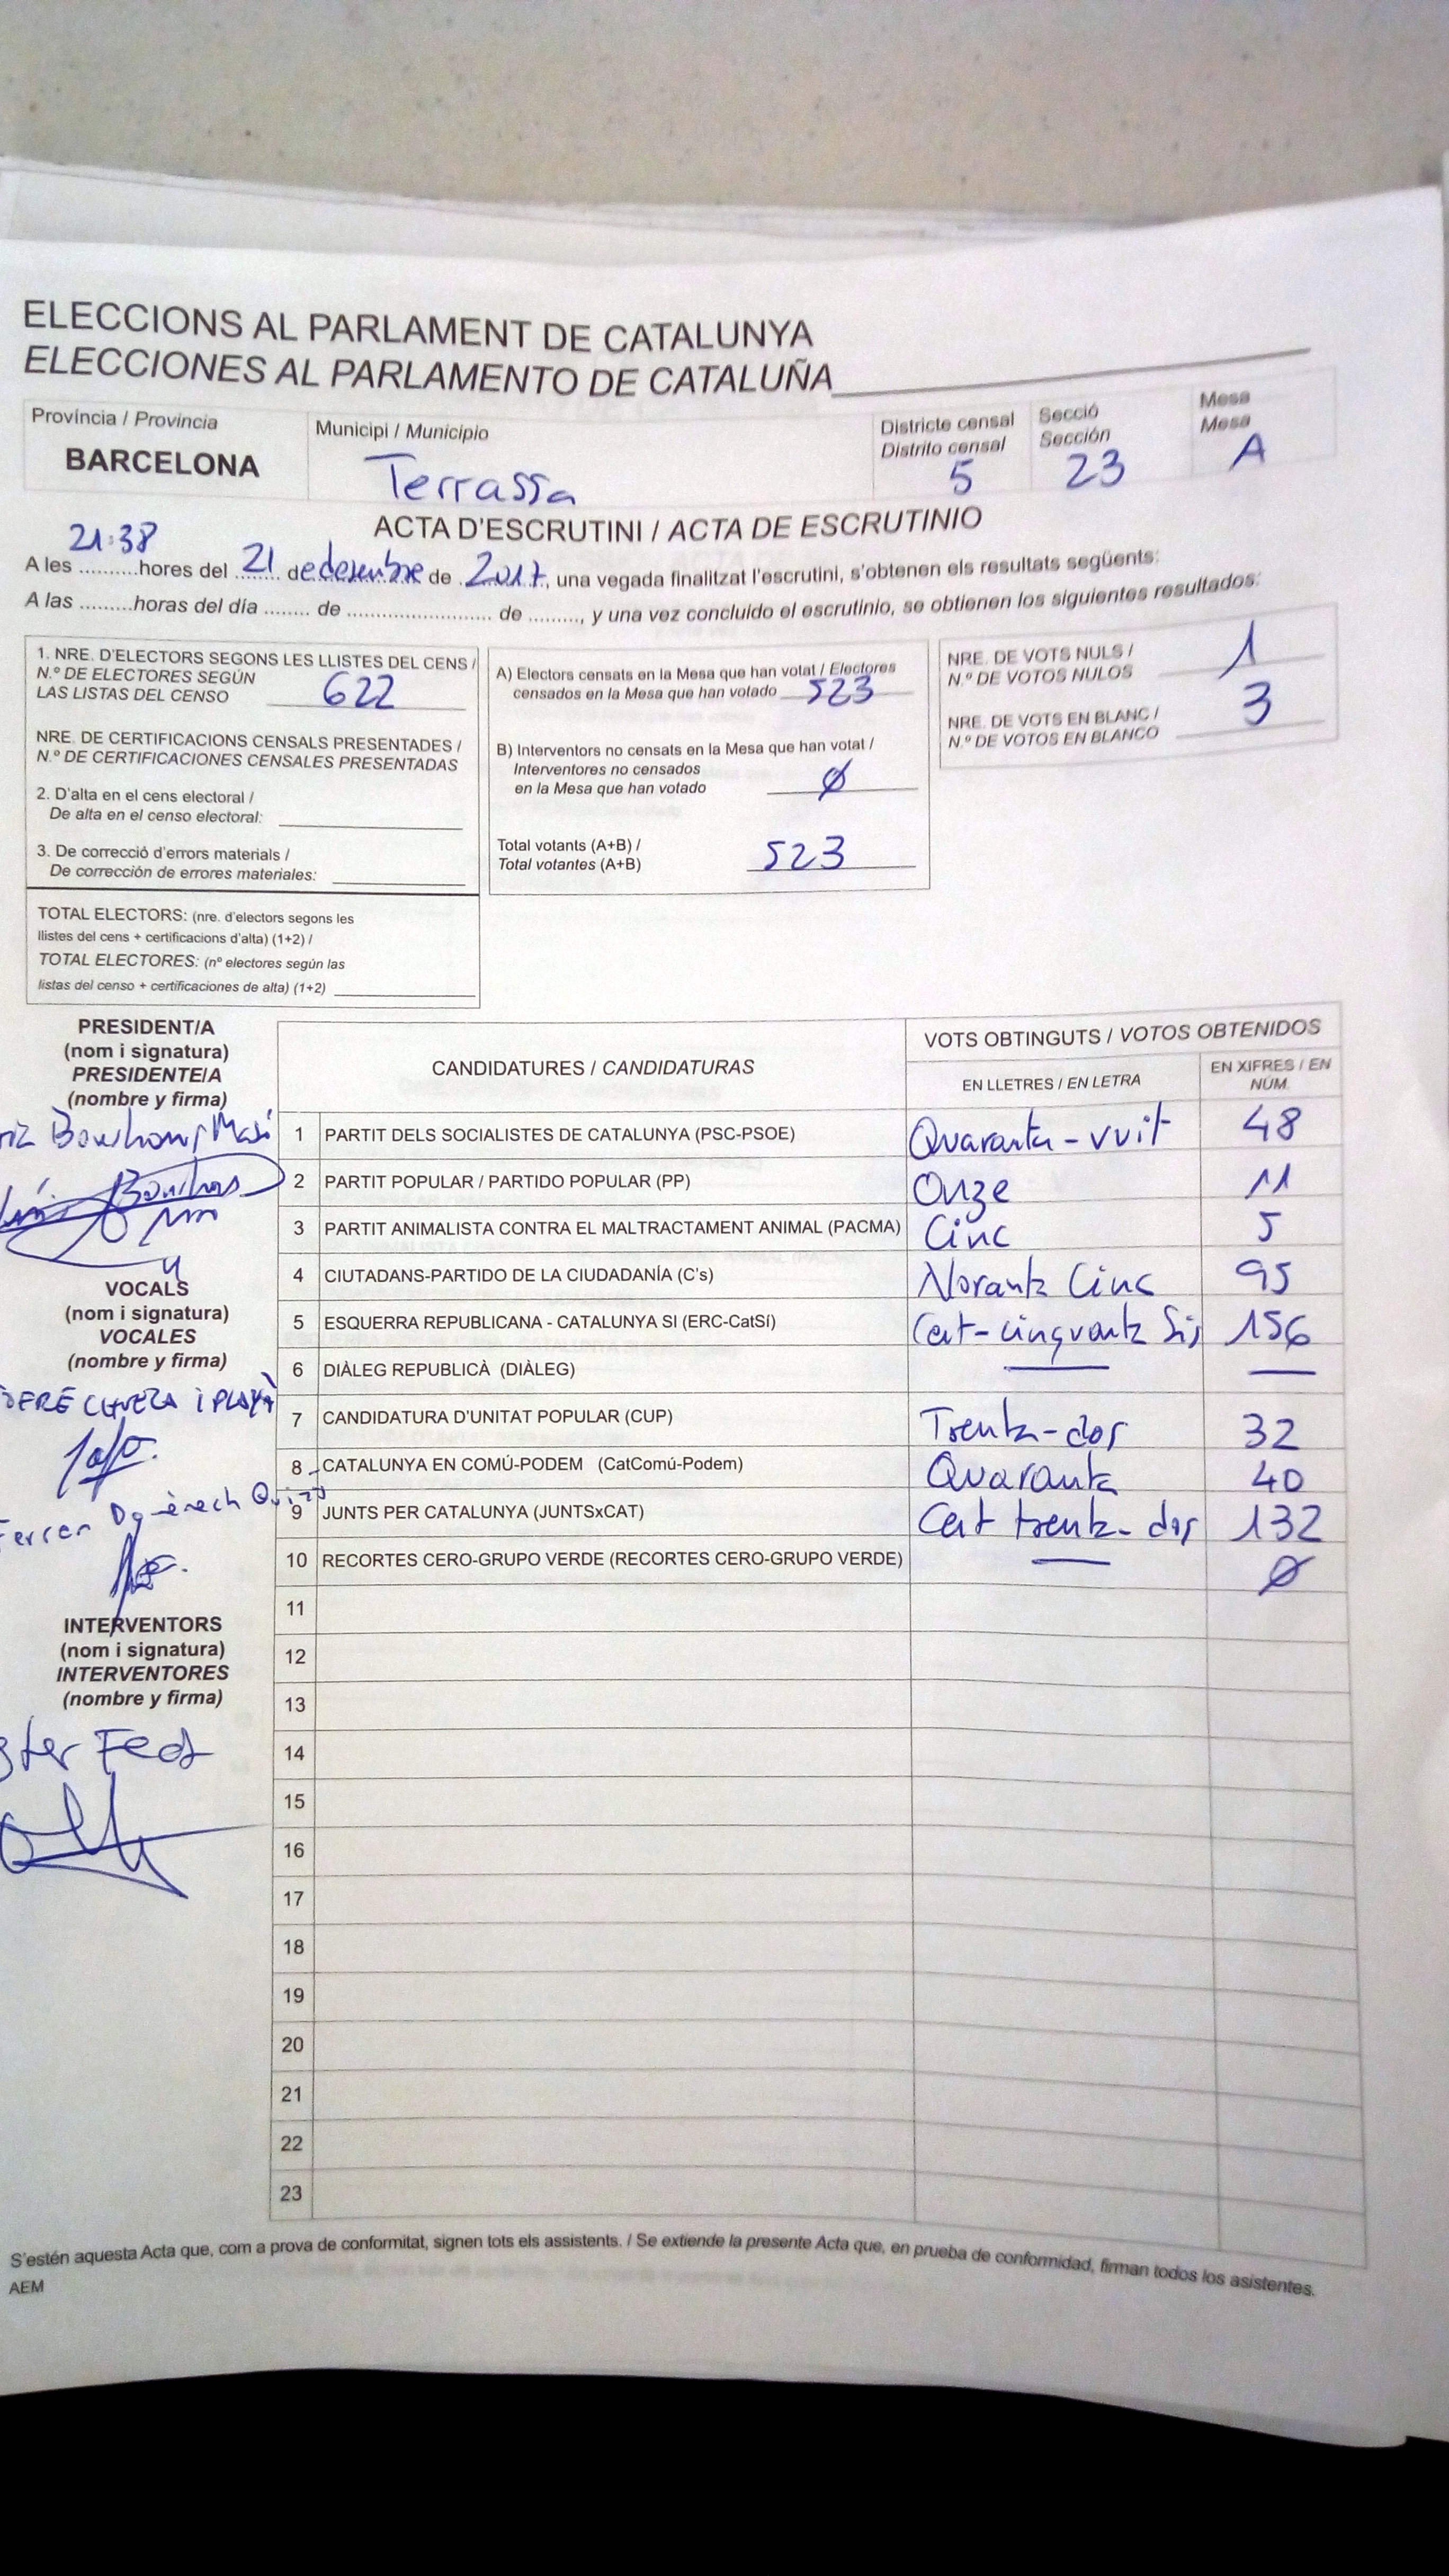 ELECCIONS AL PARLAMENT DE CATALUNYA
ELECCIONES AL PARLAMENTO DE CATALUÑA
Província / Provincia
BARCELONA
Municipi / Municipio
Terrassa
Districte censal
Distrito censal
5
Secció
Sección
23
Mesa
Mesa
A
ACTA D'ESCRUTINI / ACTA DE ESCRUTINIO
21:38
A les ..........hores del 21 de desembre de 2017, una vegada finalitzat l'escrutini, s'obtenen els resultats següents:
A las .........horas del día ........ de ......................... de ........., y una vez concluido el escrutinio, se obtienen los siguientes resultados:
1. NRE. D'ELECTORS SEGONS LES LLISTES DEL CENS /
N.º DE ELECTORES SEGÚN
LAS LISTAS DEL CENSO 622
NRE. DE CERTIFICACIONS CENSALS PRESENTADES /
N.º DE CERTIFICACIONES CENSALES PRESENTADAS
2. D'alta en el cens electoral /
De alta en el censo electoral:
3. De correcció d'errors materials /
De corrección de errores materiales:
TOTAL ELECTORS: (nre. d'electors segons les
llistes del cens + certificacions d'alta) (1+2) /
TOTAL ELECTORES: (nº electores según las
listas del censo + certificaciones de alta) (1+2)
A) Electors censats en la Mesa que han votat / Electores
censados en la Mesa que han votado 523
B) Interventors no censats en la Mesa que han votat /
Interventores no censados
en la Mesa que han votado Ø
Total votants (A+B) /
Total votantes (A+B) 523
NRE. DE VOTS NULS /
N.º DE VOTOS NULOS 1
NRE. DE VOTS EN BLANC /
N.º DE VOTOS EN BLANCO 3
PRESIDENT/A
(nom i signatura)
PRESIDENTE/A
(nombre y firma)
VOCALS
(nom i signatura)
VOCALES
(nombre y firma)
INTERVENTORS
(nom i signatura)
INTERVENTORES
(nombre y firma)
CANDIDATURES / CANDIDATURAS
VOTS OBTINGUTS / VOTOS OBTENIDOS
EN LLETRES / EN LETRA
EN XIFRES / EN
NÚM.
1 PARTIT DELS SOCIALISTES DE CATALUNYA (PSC-PSOE) Quaranta-vuit 48
2 PARTIT POPULAR / PARTIDO POPULAR (PP) Onze 11
3 PARTIT ANIMALISTA CONTRA EL MALTRACTAMENT ANIMAL (PACMA) Cinc 5
4 CIUTADANS-PARTIDO DE LA CIUDADANÍA (C's) Noranta Cinc 95
5 ESQUERRA REPUBLICANA - CATALUNYA SI (ERC-CatSí) Cent-cinquanta Sis 156
6 DIÀLEG REPUBLICÀ (DIÀLEG) — —
7 CANDIDATURA D'UNITAT POPULAR (CUP) Trenta-dos 32
8 CATALUNYA EN COMÚ-PODEM (CatComú-Podem) Quaranta 40
9 JUNTS PER CATALUNYA (JUNTSxCAT) Cent trenta-dos 132
10 RECORTES CERO-GRUPO VERDE (RECORTES CERO-GRUPO VERDE) — Ø
11
12
13
14
15
16
17
18
19
20
21
22
23
S'estén aquesta Acta que, com a prova de conformitat, signen tots els assistents. / Se extiende la presente Acta que, en prueba de conformidad, firman todos los asistentes.
AEM